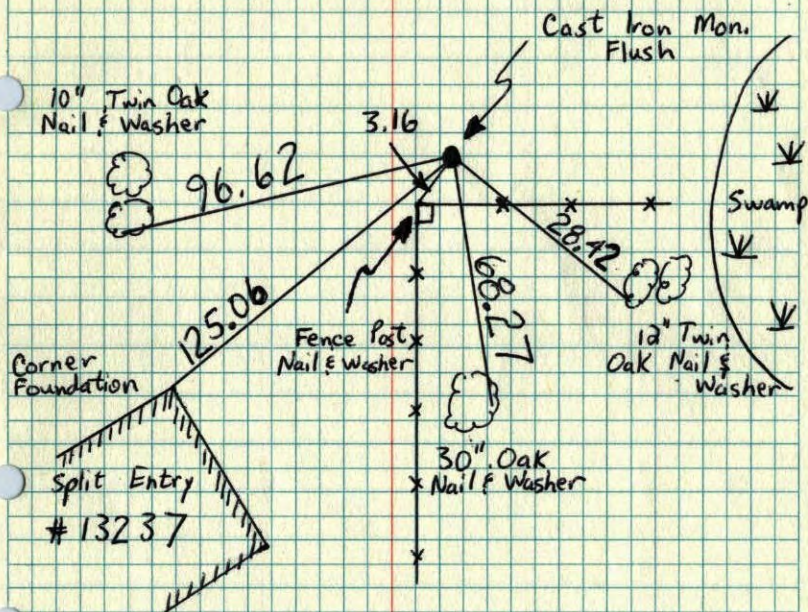 Cast Iron Mon.
Flush
10" Twin Oak
Nail & Washer
3.16
96.62
Swamp
28.42
125.06
68.27
Fence Post
Nail & Washer
12" Twin
Oak Nail &
Washer
Corner
Foundation
30" Oak
Nail & Washer
Split Entry
#13237